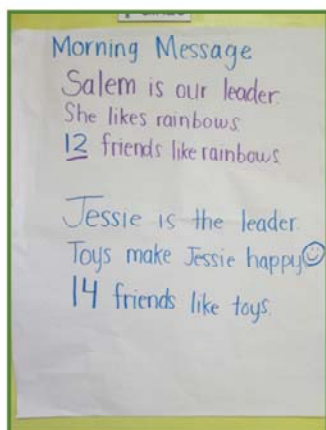 Morning Message
Salem is our leader.
She likes rainbows.
12 friends like rainbows.
Jessie is the leader.
Toys make Jessie happy
14 friends like toys.